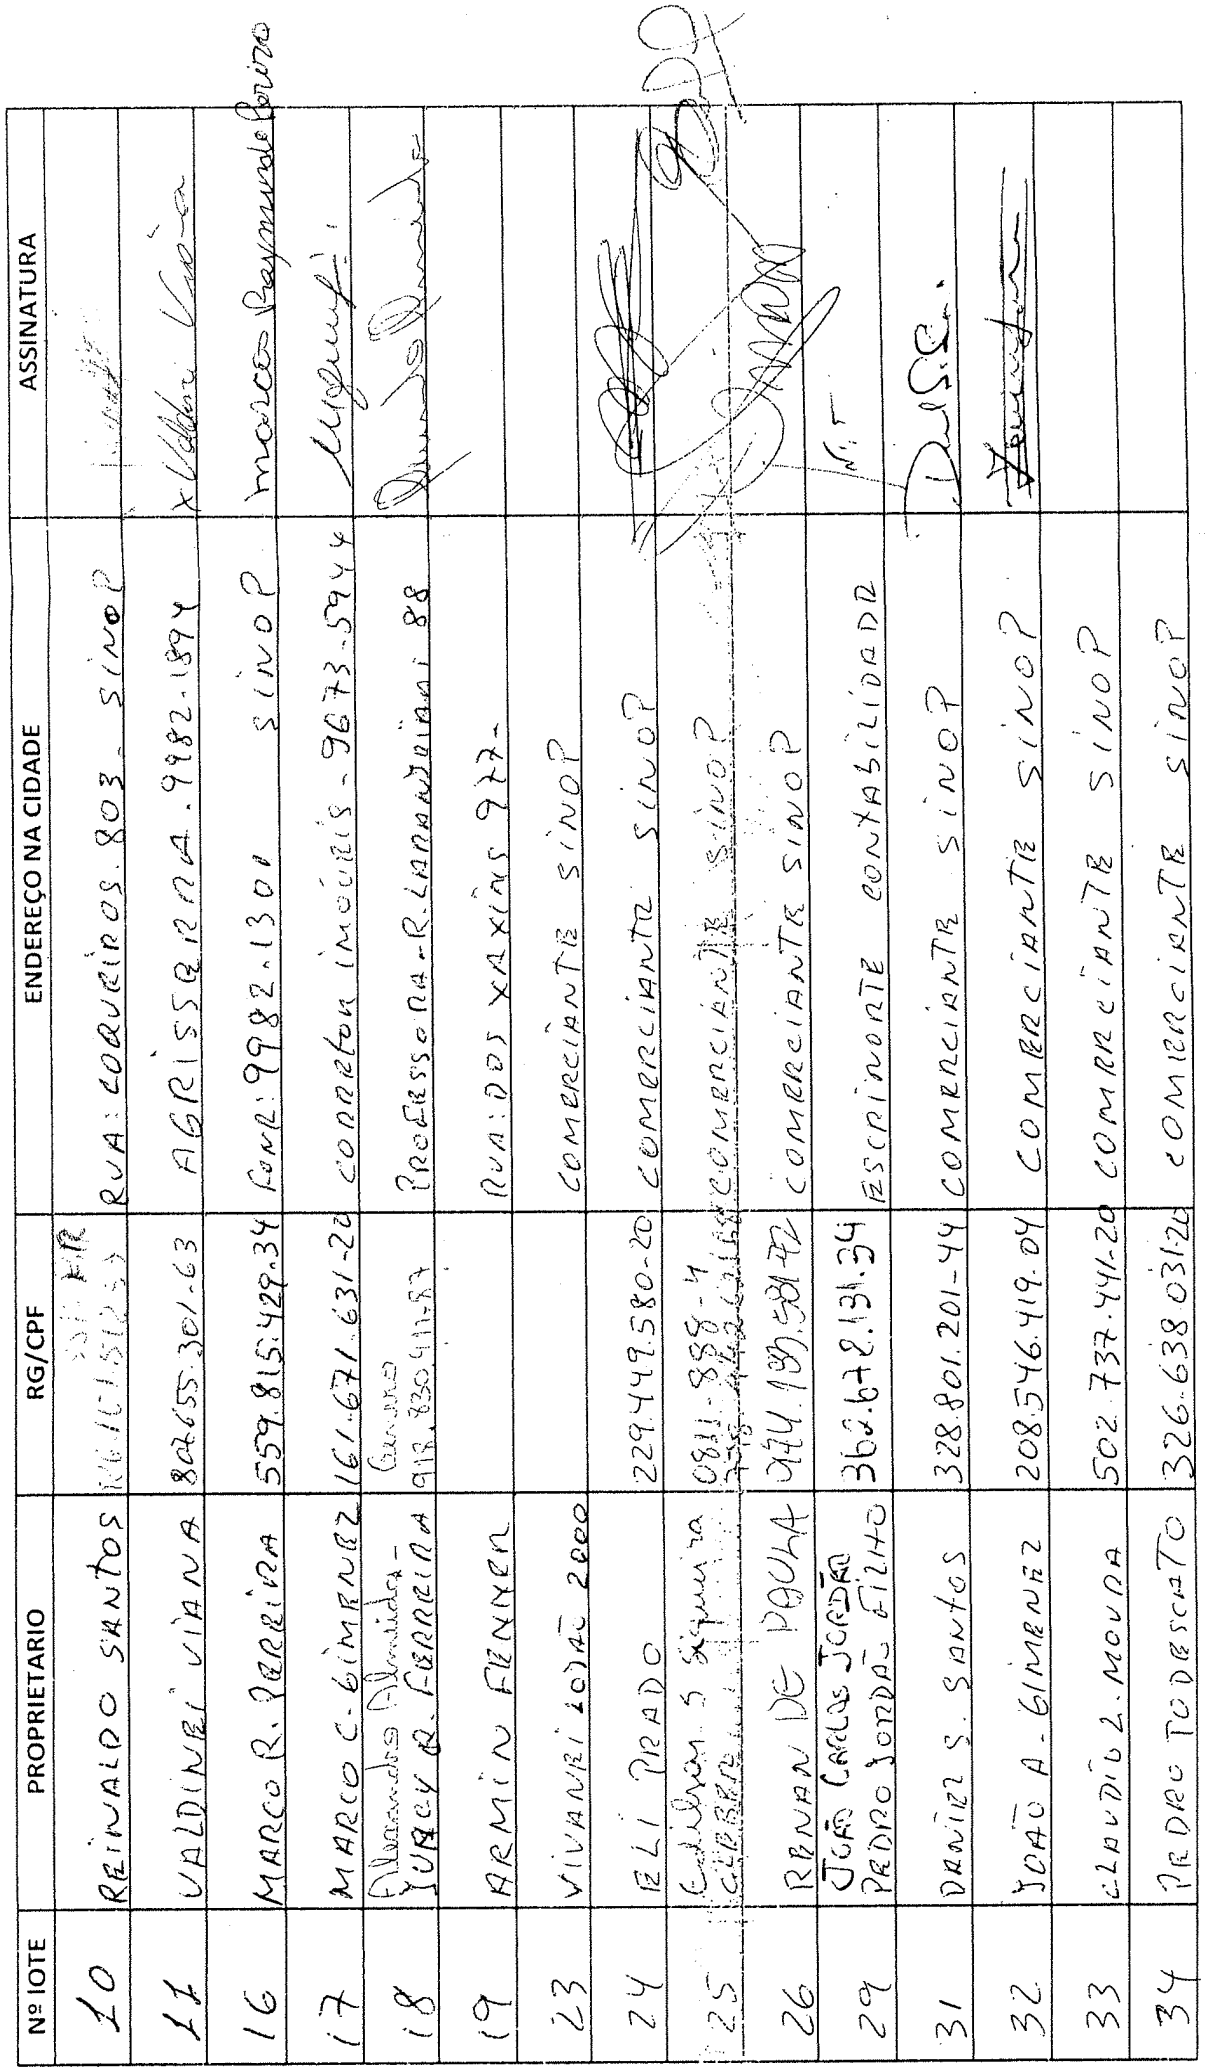 Nº lOTE PROPRIETARIO RG/CPF ENDEREÇO NA CIDADE ASSINATURA
10 REINALDO SANTOS RUA: COQUEIROS. 803 - SINOP
11 VALDINEI VIANA 806.655.301-63 AGRISSERRA. 9982-1894 x Valdinei Viana
16 MARCO R. PERREIRA 559.815.429.34 FONE: 9982.1301 SINOP Marcos Raymundo Perizo
17 MARCO C. GIMENEZ 161.671.631-20 CORRETOR IMÓVEIS - 9673-5944
Alexandro Almida - Genro
18 JURCY R. FERREIRA 918.830411-87 PROFESSORA - R. 88
19 ARMIN FENNER RUA: DOS XAXINS 977-
23 VIVANEI 2000 COMERCIANTE SINOP
24 ELI PRADO 229.449.580-20 COMERCIANTE SINOP
Edilson S Siqueira 0811-888-4
25 COMERCIANTE SINOP
26 RENAN DE PAULA COMERCIANTE SINOP
JOÃO CARLOS JORDÃO
29 PEDRO JORDÃO FILHO 362.672.131.34 ESCRINORTE CONTABILIDADE
31 DANIEL S. SANTOS 328.801.201-44 COMERCIANTE SINOP
32 JOÃO A. GIMENEZ 208.546.419.04 COMERCIANTE SINOP
33 CLAUDIO L. MOURA 502.737.441-20 COMERCIANTE SINOP
34 PEDRO TODESCATO 326.638 031-20 COMERCIANTE SINOP